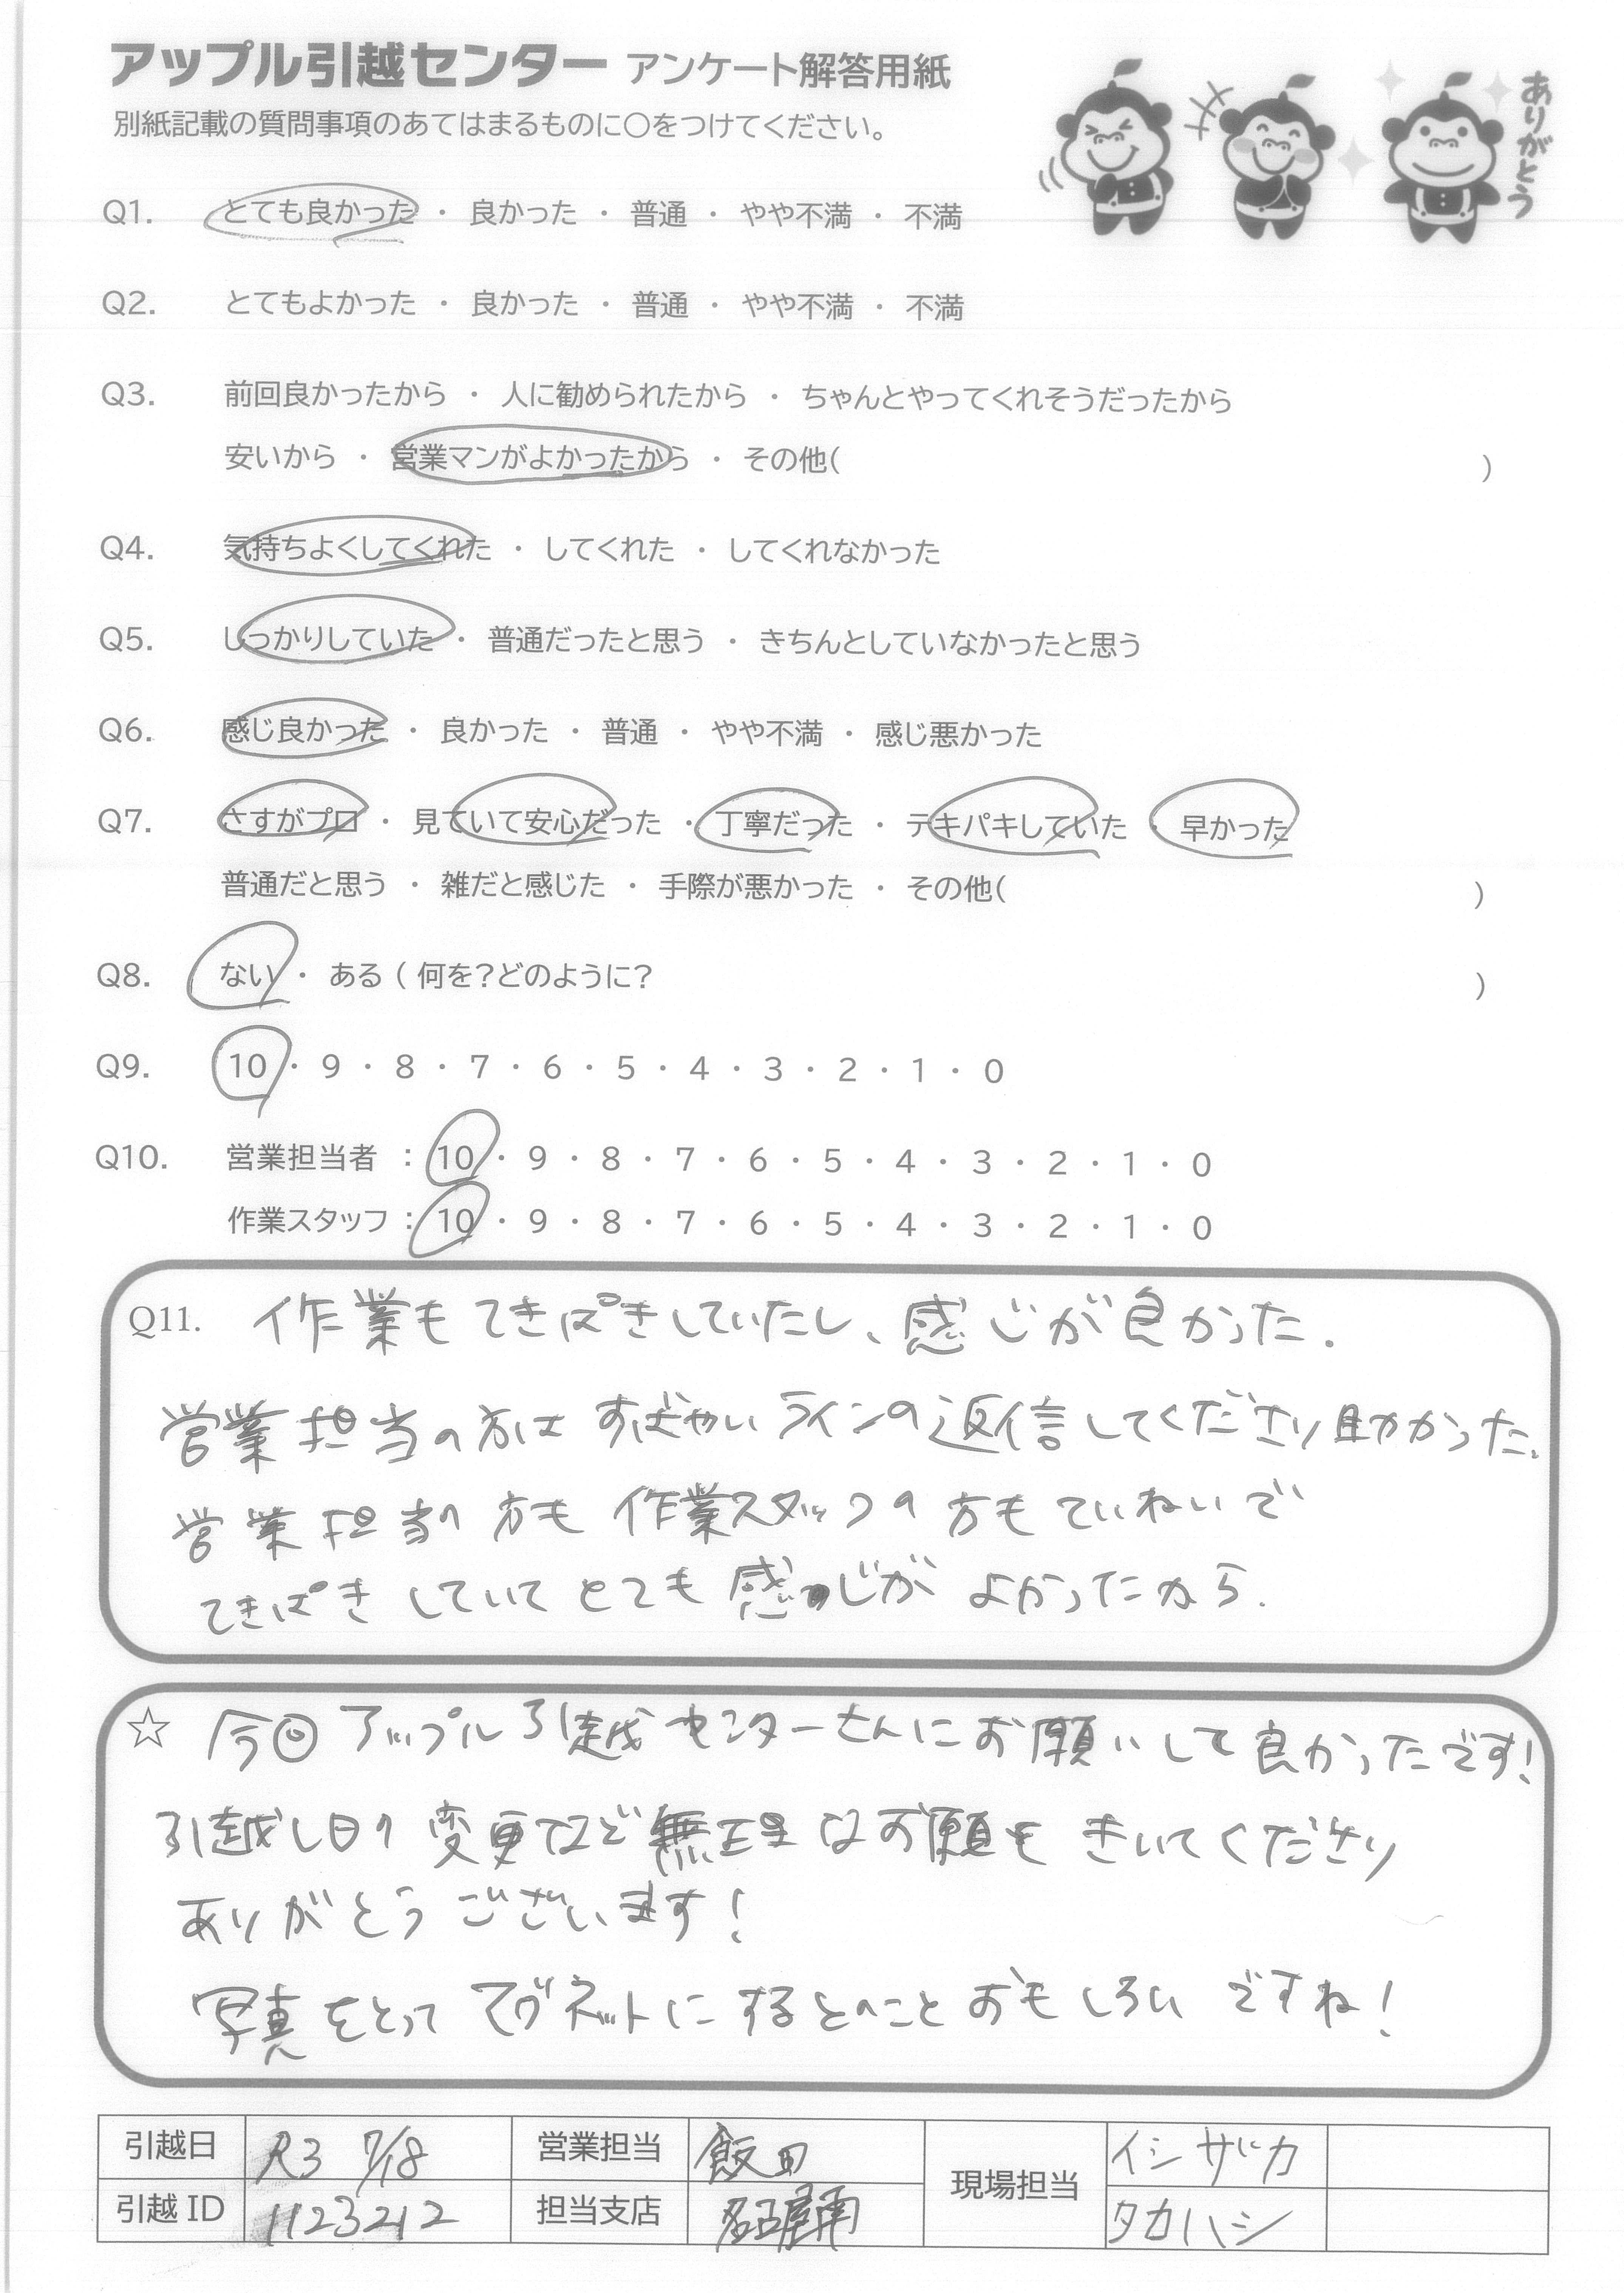 アップル引越センター アンケート解答用紙
別紙記載の質問事項のあてはまるものに〇をつけてください。
ありがとう
Q1. とても良かった ・ 良かった ・ 普通 ・ やや不満 ・ 不満
Q2. とてもよかった ・ 良かった ・ 普通 ・ やや不満 ・ 不満
Q3. 前回良かったから ・ 人に勧められたから ・ ちゃんとやってくれそうだったから
安いから ・ 営業マンがよかったから ・ その他( )
Q4. 気持ちよくしてくれた ・ してくれた ・ してくれなかった
Q5. しっかりしていた ・ 普通だったと思う ・ きちんとしていなかったと思う
Q6. 感じ良かった ・ 良かった ・ 普通 ・ やや不満 ・ 感じ悪かった
Q7. さすがプロ ・ 見ていて安心だった ・ 丁寧だった ・ テキパキしていた ・ 早かった
普通だと思う ・ 雑だと感じた ・ 手際が悪かった ・ その他( )
Q8. ない ・ ある ( 何を?どのように? )
Q9. 10 ・ 9 ・ 8 ・ 7 ・ 6 ・ 5 ・ 4 ・ 3 ・ 2 ・ 1 ・ 0
Q10. 営業担当者 : 10 ・ 9 ・ 8 ・ 7 ・ 6 ・ 5 ・ 4 ・ 3 ・ 2 ・ 1 ・ 0
作業スタッフ : 10 ・ 9 ・ 8 ・ 7 ・ 6 ・ 5 ・ 4 ・ 3 ・ 2 ・ 1 ・ 0
Q11. 作業もてきぱきしていたし、感じが良かった.
営業担当の方は すばやいラインの返信してくださり助かった.
営業担当の方も 作業スタッフの方もていねいで
てきぱきしていてとても感じがよかったから.
☆ 今回アップル引越センターさんにお願いして良かったです!
引越し日の変更など無理なお願もきいてくださり
ありがとうございます!
写真をとってマグネットにするとのことおもしろいですね!
引越日 R3 7/18 営業担当 飯田 現場担当 イシザカ
引越 ID 1123212 担当支店 名古屋南 タカハシ